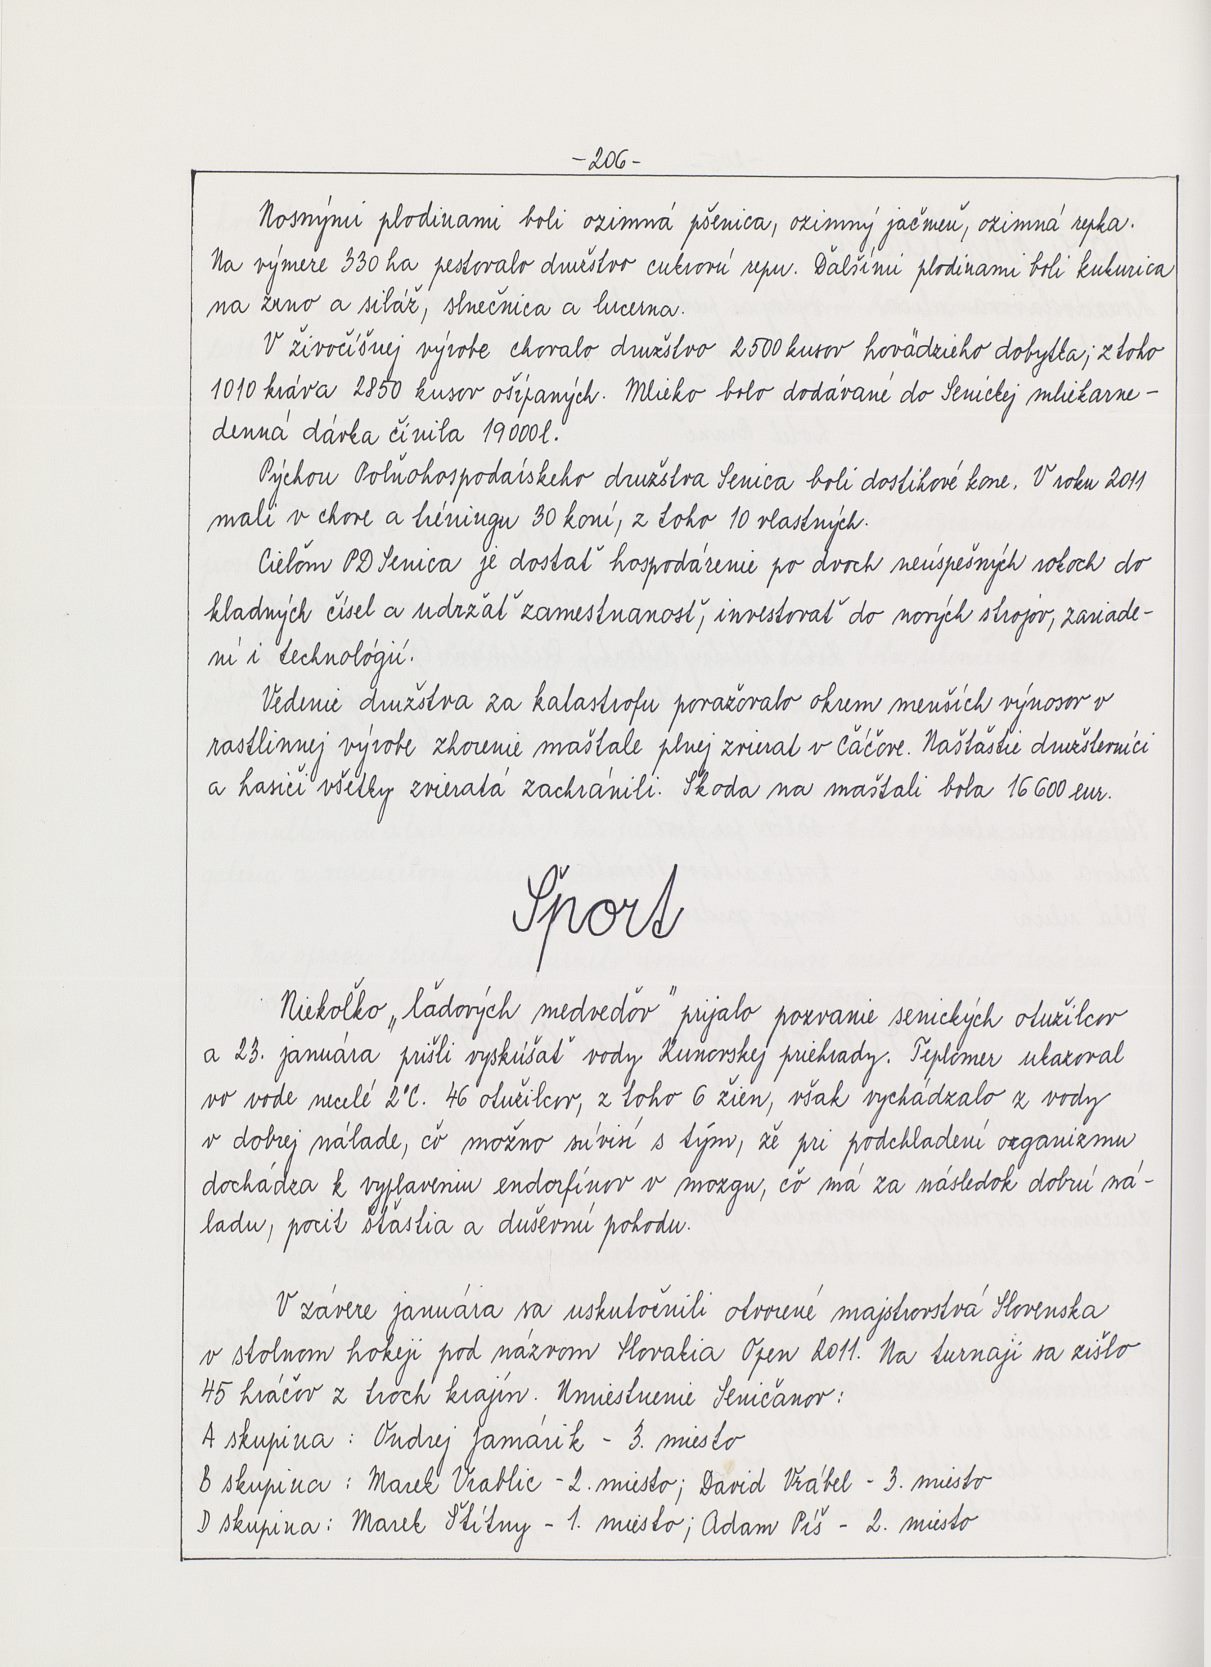 -206-
Nosnými plodinami boli ozimná pšenica, ozimný jačmeň, ozimná repka.
Na výmere 330 ha pestovalo družstvo cukrovú repu. Ďalšími plodinami boli kukurica
na zrno a siláž, slnečnica a lucerna.
V živočíšnej výrobe chovalo družstvo 2500 kusov hovädzieho dobytka; z toho
1010 kráv a 2850 kusov ošípaných. Mlieko bolo dodávané do Senickej mliekarne -
denná dávka činila 19 000 l.
Pýchou Poľnohospodárskeho družstva Senica boli dostihové kone. V roku 2011
mali v chove a tréningu 30 koní, z toho 10 vlastných.
Cieľom PD Senica je dostať hospodárenie po dvoch neúspešných rokoch do
kladných čísel a udržať zamestnanosť, investovať do nových strojov, zariade-
ní i technológií.
Vedenie družstva za katastrofu považovalo okrem menších výnosov v
rastlinnej výrobe zhorenie maštale plnej zvierat v Čáčove. Našťastie družstevníci
a hasiči všetky zvieratá zachránili. Škoda na maštali bola 16 600 eur.
Šport
Niekoľko „ľadových medveďov" prijalo pozvanie senických otužilcov
a 23. januára prišli vyskúšať vody Kunovskej priehrady. Teplomer ukazoval
vo vode necelé 2°C. 46 otužilcov, z toho 6 žien, však vychádzalo z vody
v dobrej nálade, čo možno súvisí s tým, že pri podchladení organizmu
dochádza k vyplaveniu endorfínov v mozgu, čo má za následok dobrú ná-
ladu, pocit šťastia a duševnú pohodu.
V závere januára sa uskutočnili otvorené majstrovstvá Slovenska
v stolnom hokeji pod názvom Slovakia Open 2011. Na turnaji sa zišlo
45 hráčov z troch krajín. Umiestnenie Seničanov:
A skupina : Ondrej Jamárik - 3. miesto
B skupina : Marek Vrablic - 2. miesto; David Vrábel - 3. miesto
D skupina : Marek Štítny - 1. miesto; Adam Píš - 2. miesto